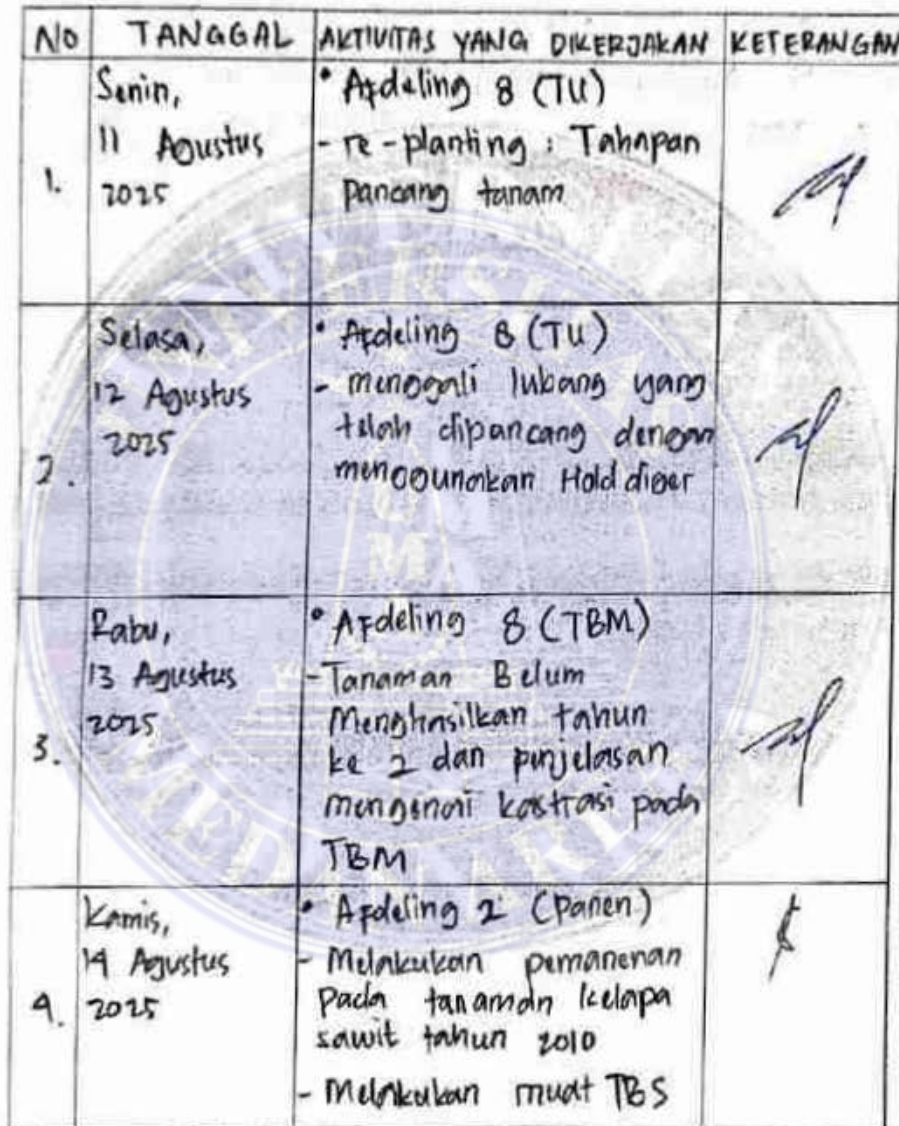 NO TANGGAL AKTIVITAS YANG DIKERJAKAN KETERANGAN
1.
Senin,
11 Agustus
2025
• Afdeling 8 (TU)
- re-planting : Tahapan
pancang tanam
2.
Selasa,
12 Agustus
2025
• Afdeling 8 (TU)
- menggali lubang yang
telah dipancang dengan
menggunakan Hold diger
3.
Rabu,
13 Agustus
2025
• Afdeling 8 (TBM)
- Tanaman Belum
Menghasilkan tahun
ke 2 dan penjelasan
mengenai kastrasi pada
TBM
4.
Kamis,
14 Agustus
2025
• Afdeling 2 (Panen)
- Melakukan pemanenan
pada tanaman kelapa
sawit tahun 2010
- Melakukan muat TBS
UNIVERSITAS
UMA
MEDAN AREA